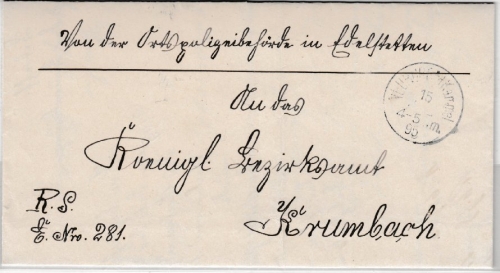 Von der Ortspolizeibehörde in Edelstetten
An das
Koenigl. Bezirksamt
Krumbach
R. S.
E. Nro. 281.
15
95